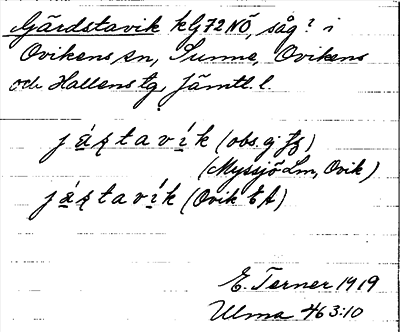 Gärdstavik kG72NÖ, såg? i
Ovikens sn, Sunne, Ovikens
och Hallens tg, Jämtl. l.
já̱ʂtaví̱k (obs. ej jʒ)
(Myssjö Lm, Ovik)
já̱ʂtaví̱k (Ovik EA)
E. Terner 1919
Ulma 463:10